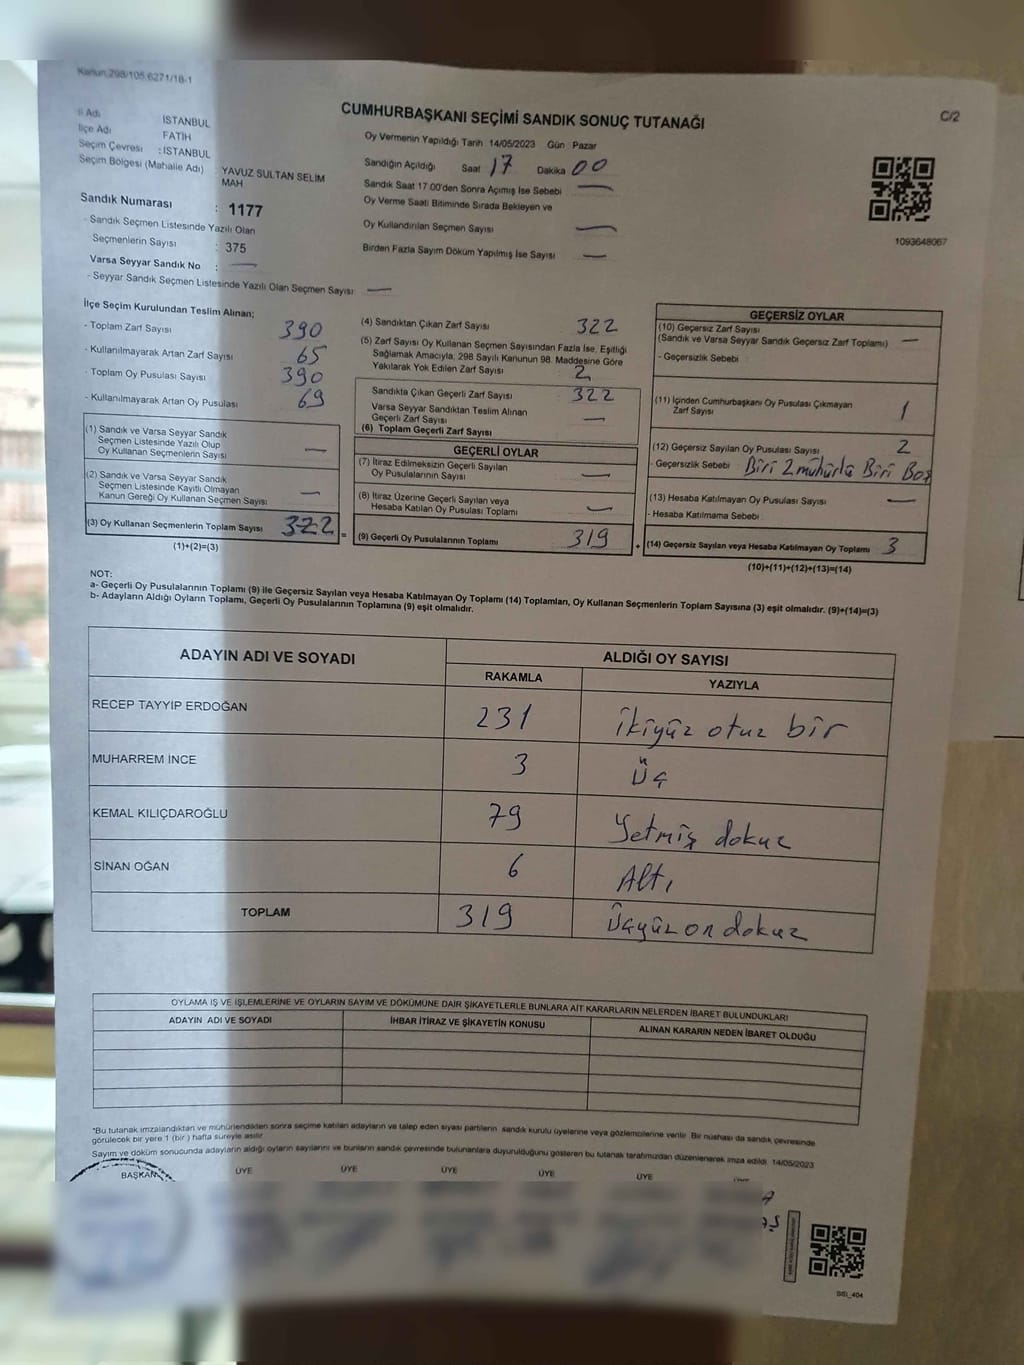 Kanun:298/105,6271/18-1
C/2
CUMHURBAŞKANI SEÇİMİ SANDIK SONUÇ TUTANAĞI
İl Adı İSTANBUL
İlçe Adı FATİH
Seçim Çevresi : İSTANBUL
Seçim Bölgesi (Mahalle Adı) YAVUZ SULTAN SELİM MAH
Sandık Numarası : 1177
- Sandık Seçmen Listesinde Yazılı Olan
Seçmenlerin Sayısı : 375
Varsa Seyyar Sandık No : —
- Seyyar Sandık Seçmen Listesinde Yazılı Olan Seçmen Sayısı —
Oy Vermenin Yapıldığı Tarih 14/05/2023 Gün : Pazar
Sandığın Açıldığı Saat 17 Dakika 00
Sandık Saat 17.00'den Sonra Açımış İse Sebebi —
Oy Verme Saati Bitiminde Sırada Bekleyen ve
Oy Kullandırılan Seçmen Sayısı —
Birden Fazla Sayım Döküm Yapılmış İse Sayısı —
1093648067
İlçe Seçim Kurulundan Teslim Alınan;
- Toplam Zarf Sayısı 390
- Kullanılmayarak Artan Zarf Sayısı 65
- Toplam Oy Pusulası Sayısı 390
- Kullanılmayarak Artan Oy Pusulası 69
(1) Sandık ve Varsa Seyyar Sandık
Seçmen Listesinde Yazılı Olup
Oy Kullanan Seçmenlerin Sayısı —
(2) Sandık ve Varsa Seyyar Sandık
Seçmen Listesinde Kayıtlı Olmayan
Kanun Gereği Oy Kullanan Seçmen Sayısı —
(3) Oy Kullanan Seçmenlerin Toplam Sayısı 322 =
(1)+(2)=(3)
(4) Sandıktan Çıkan Zarf Sayısı 322
(5) Zarf Sayısı Oy Kullanan Seçmen Sayısından Fazla İse, Eşitliği
Sağlamak Amacıyla, 298 Sayılı Kanunun 98. Maddesine Göre
Yakılarak Yok Edilen Zarf Sayısı 2
Sandıkta Çıkan Geçerli Zarf Sayısı 322
Varsa Seyyar Sandıktan Teslim Alınan
Geçerli Zarf Sayısı —
(6) Toplam Geçerli Zarf Sayısı
GEÇERLİ OYLAR
(7) İtiraz Edilmeksizin Geçerli Sayılan
Oy Pusulalarının Sayısı —
(8) İtiraz Üzerine Geçerli Sayılan veya
Hesaba Katılan Oy Pusulası Toplamı —
(9) Geçerli Oy Pusulalarının Toplamı 319 +
GEÇERSİZ OYLAR
(10) Geçersiz Zarf Sayısı
(Sandık ve Varsa Seyyar Sandık Geçersiz Zarf Toplamı) —
- Geçersizlik Sebebi
(11) İçinden Cumhurbaşkanı Oy Pusulası Çıkmayan
Zarf Sayısı 1
(12) Geçersiz Sayılan Oy Pusulası Sayısı 2
- Geçersizlik Sebebi Biri 2 mühürlü Biri Boş
(13) Hesaba Katılmayan Oy Pusulası Sayısı —
- Hesaba Katılmama Sebebi
(14) Geçersiz Sayılan veya Hesaba Katılmayan Oy Toplamı 3
(10)+(11)+(12)+(13)=(14)
NOT:
a- Geçerli Oy Pusulalarının Toplamı (9) ile Geçersiz Sayılan veya Hesaba Katılmayan Oy Toplamı (14) Toplamları, Oy Kullanan Seçmenlerin Toplam Sayısına (3) eşit olmalıdır. (9)+(14)=(3)
b- Adayların Aldığı Oyların Toplamı, Geçerli Oy Pusulalarının Toplamına (9) eşit olmalıdır.
ADAYIN ADI VE SOYADI ALDIĞI OY SAYISI
RAKAMLA YAZIYLA
RECEP TAYYİP ERDOĞAN 231 ikiyüz otuz bir
MUHARREM İNCE 3 üç
KEMAL KILIÇDAROĞLU 79 Yetmiş dokuz
SİNAN OĞAN 6 Altı
TOPLAM 319 Üçyüz on dokuz
OYLAMA İŞ VE İŞLEMLERİNE VE OYLARIN SAYIM VE DÖKÜMÜNE DAİR ŞİKAYETLERLE BUNLARA AİT KARARLARIN NELERDEN İBARET BULUNDUKLARI
ADAYIN ADI VE SOYADI İHBAR İTİRAZ VE ŞİKAYETİN KONUSU ALINAN KARARIN NEDEN İBARET OLDUĞU
*Bu tutanak imzalandıktan ve mühürlendikten sonra seçime katılan adayların ve talep eden siyasi partilerin sandık kurulu üyelerine veya gözlemcilerine verilir. Bir nüshası da sandık çevresinde
görülecek bir yere 1 (bir) hafta süreyle asılır.
Sayım ve döküm sonucunda adayların aldığı oyların sayılarını ve bunların sandık çevresinde bulunanlara duyurulduğunu gösteren bu tutanak tarafımızdan düzenlenerek imza edildi. 14/05/2023
BAŞKAN ÜYE ÜYE ÜYE ÜYE ÜYE